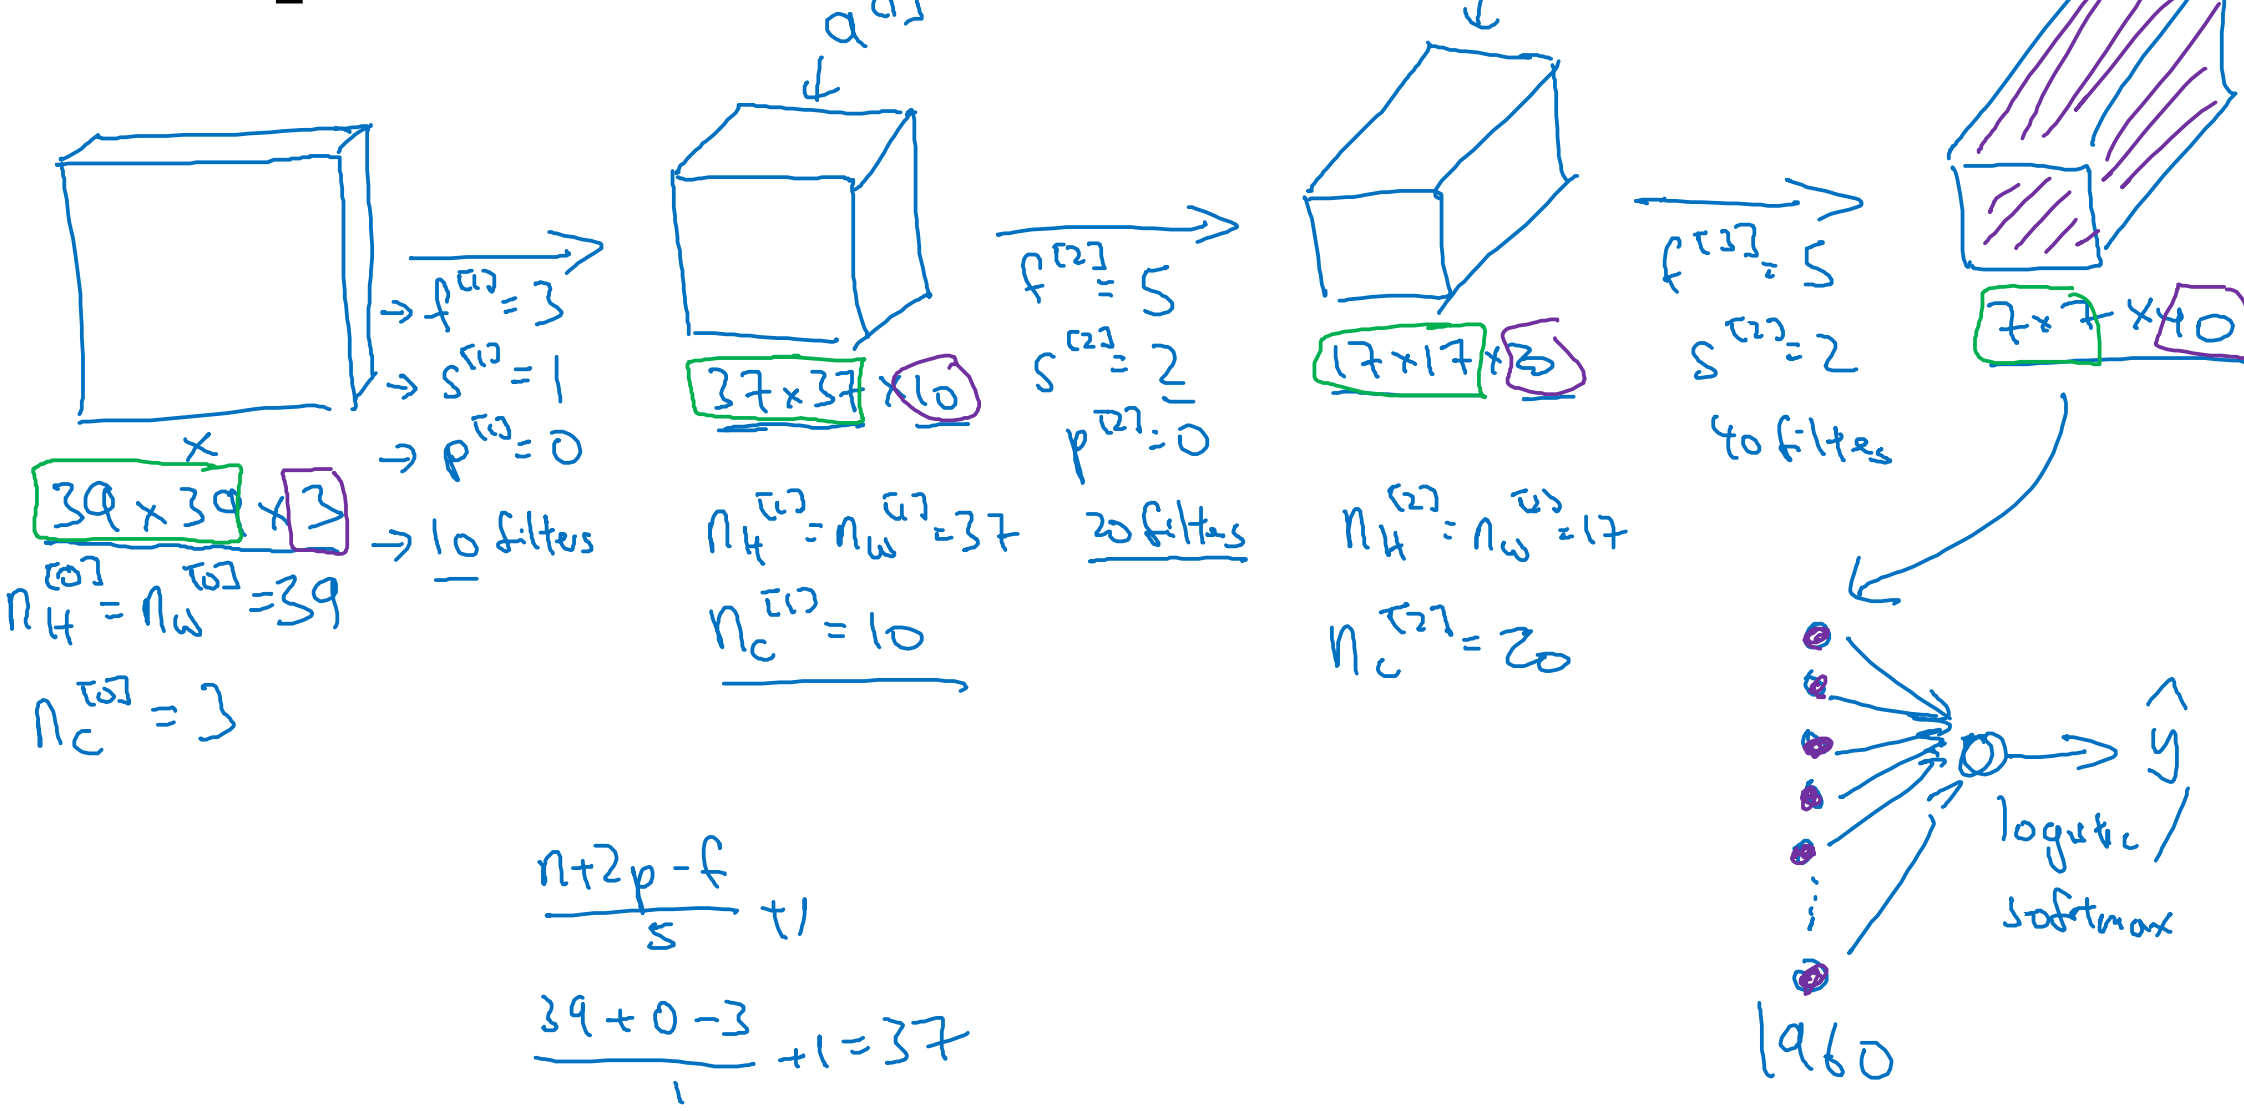 a^[1]
x
39 x 39 x 3
n_H^[0] = n_W^[0] = 39
n_C^[0] = 3
→ f^[1] = 3
→ s^[1] = 1
→ p^[1] = 0
→ 10 filters
37 x 37 x 10
n_H^[1] = n_W^[1] = 37
n_C^[1] = 10
f^[2] = 5
s^[2] = 2
p^[2] = 0
20 filters
17 x 17 x
n_H^[2] = n_W^[2] = 17
n_C^[2] = 20
f^[3] = 5
s^[2] = 2
40 filters
7 x 7 x 40
ŷ
logistic /
softmax
1960
n+2p-f / s +1
39+0-3 / 1 +1 = 37